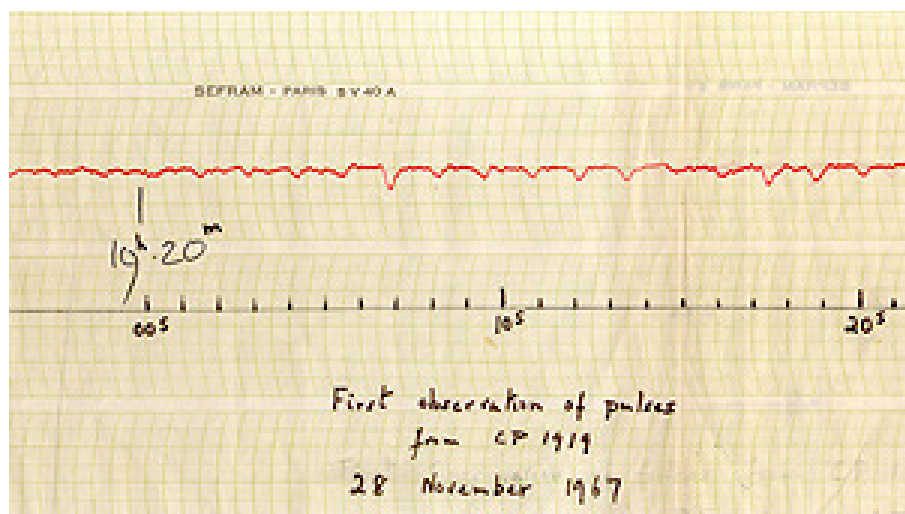 SEFRAM - PARIS BV40A
19ʰ.20ᵐ
00ˢ 10ˢ 20ˢ
First observation of pulses
from CP 1919
28 November 1967